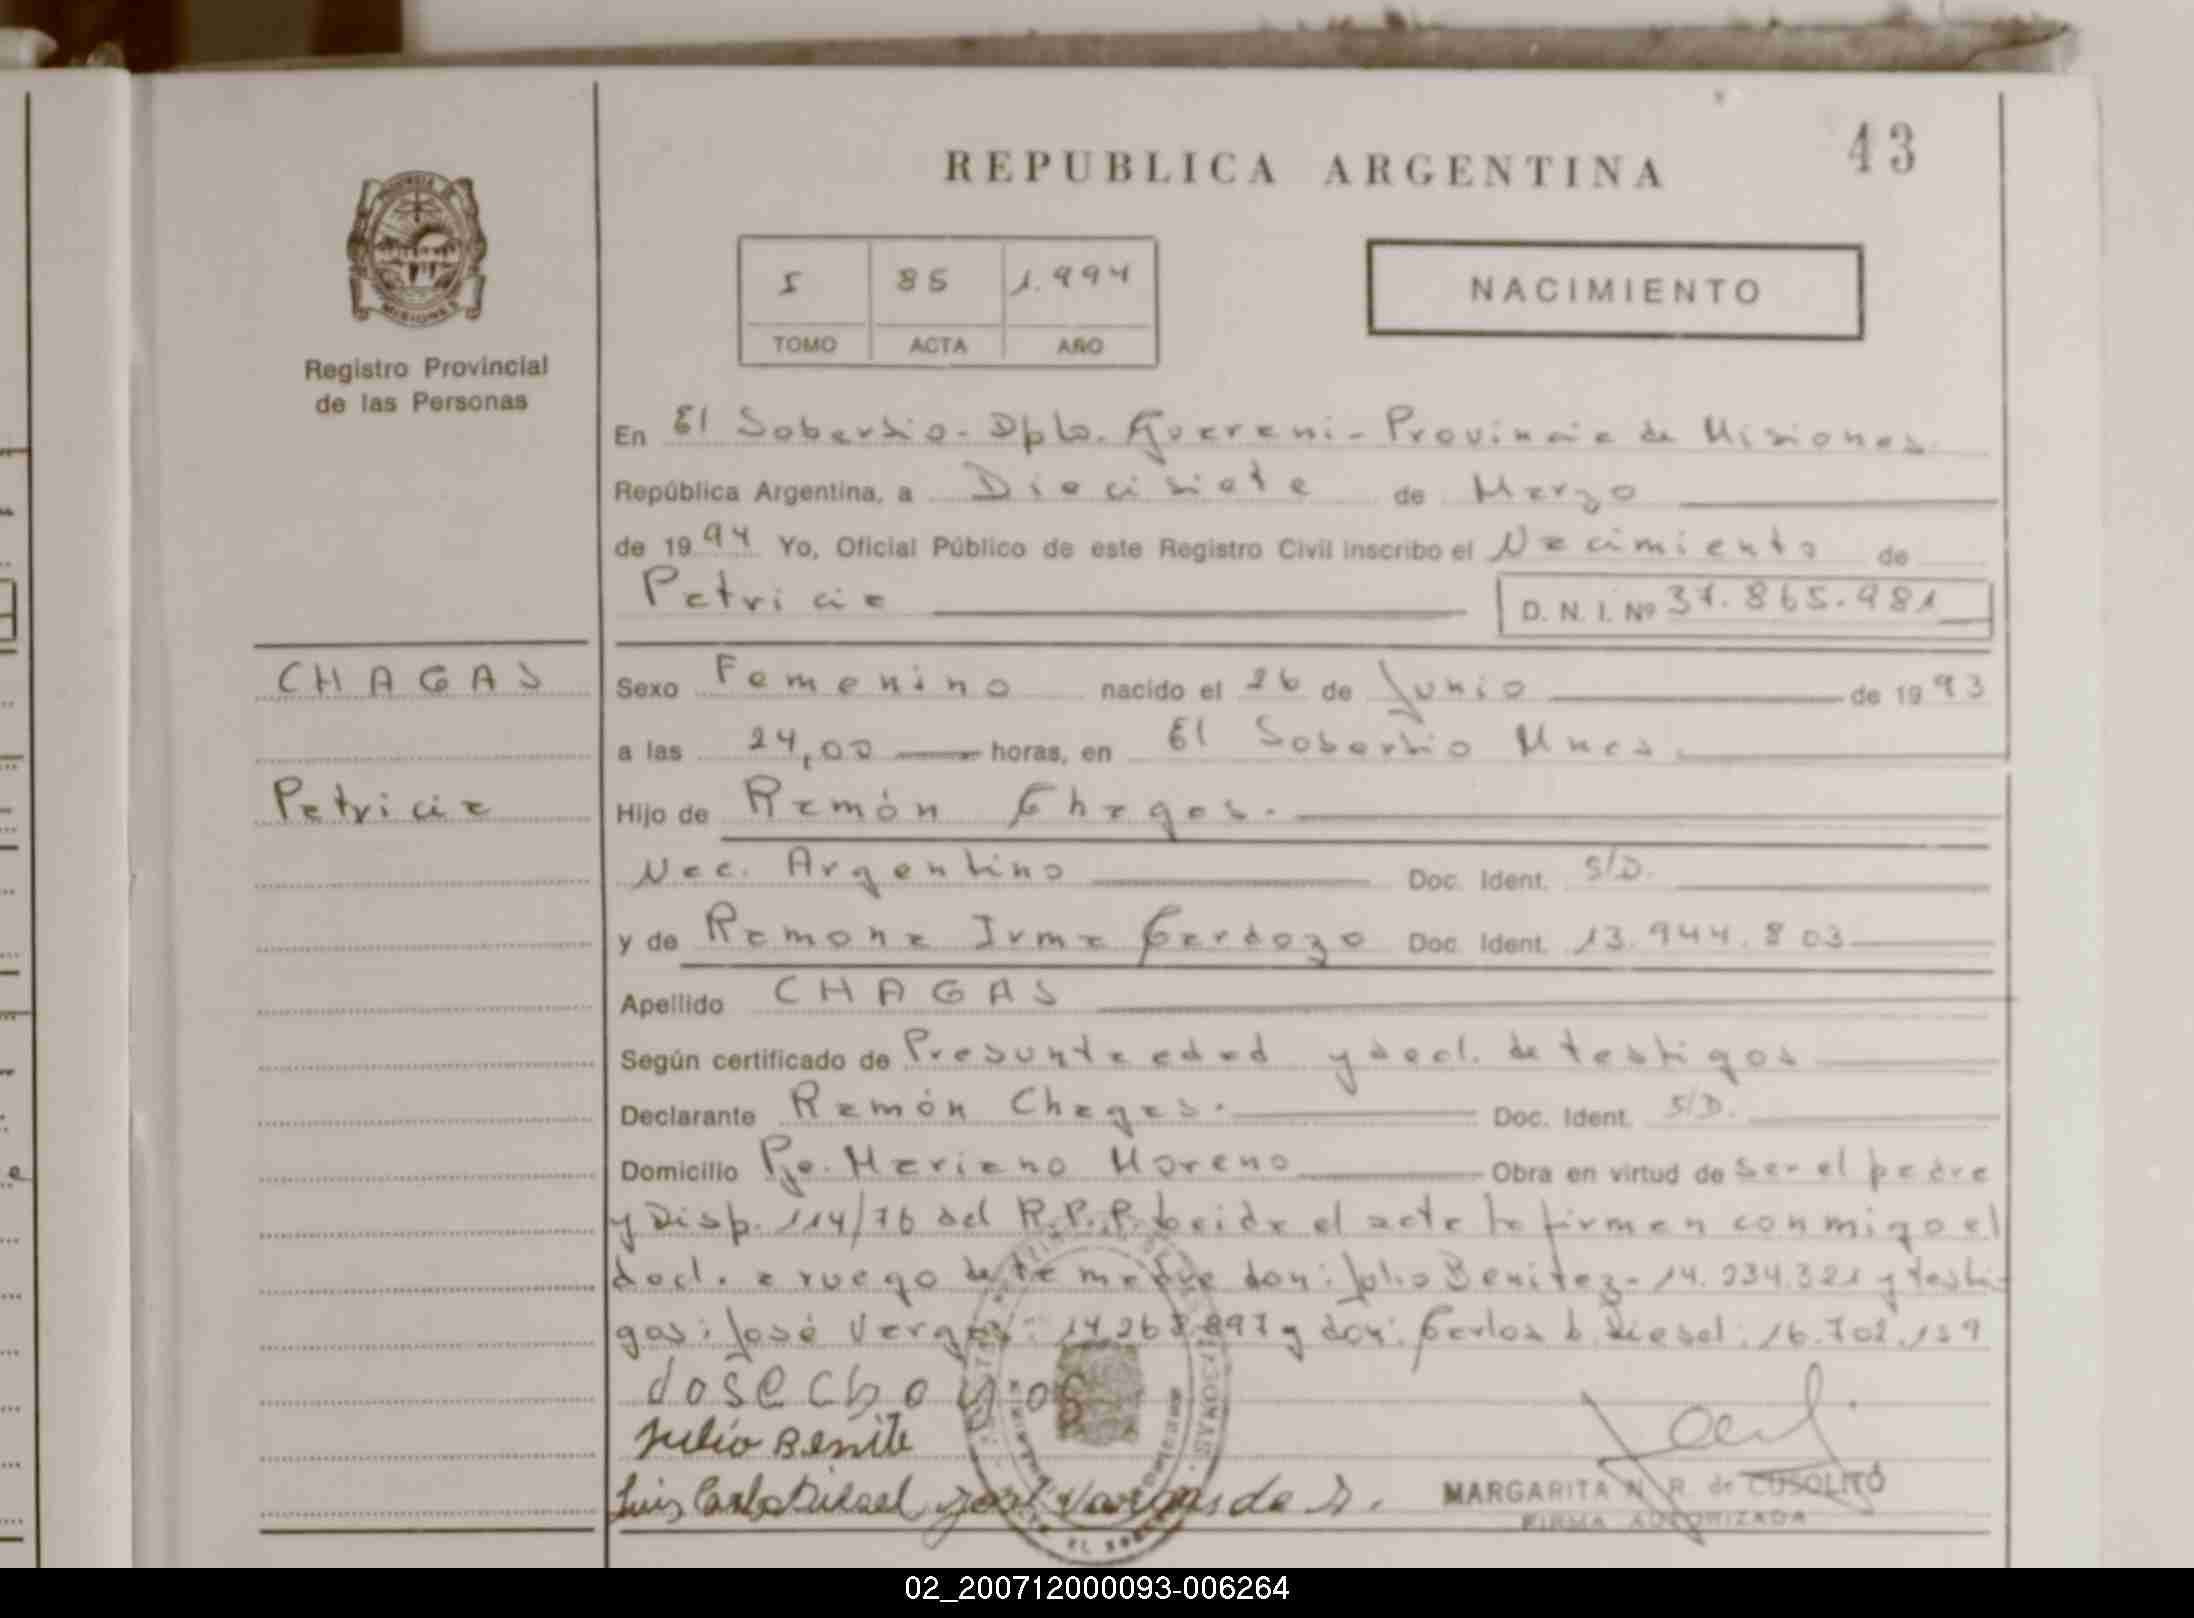 REPUBLICA ARGENTINA
43
MISIONES
Registro Provincial
de las Personas
I 85 1.994
TOMO ACTA AÑO
NACIMIENTO
En El Soberbio - Dpto. Guarani - Provincia de Misiones.
República Argentina, a Diecisiete de Marzo
de 1994 Yo, Oficial Público de este Registro Civil inscribo el Nacimiento de
Patricia D. N. I. Nº 37.865.981
CHAGAS
Sexo Femenino nacido el 26 de Junio de 1993
a las 24,00 horas, en El Soberbio Mnes.
Patricia
Hijo de Ramón Chagas.
Nac. Argentino Doc. Ident. S/D.
y de Ramona Irma Cardozo Doc. Ident. 13.944.803
Apellido CHAGAS
Según certificado de Presunta edad y decl. de testigos
Declarante Ramón Chagas. Doc. Ident. S/D.
Domicilio Pje. Mariano Moreno Obra en virtud de ser el padre
y Disp. 114/76 del R.P.P. leida el acta la firman conmigo el
decl. a ruego de la madre don: Julio Benitez - 14.234.321 y testi-
gos: José Vargas: y don: Carlos Diesel: 16.702.139
Julio Benite
Luis Carlos José Vargas da
MARGARITA N. R. de CUSOLITO
FIRMA AUTORIZADA
02_200712000093-006264